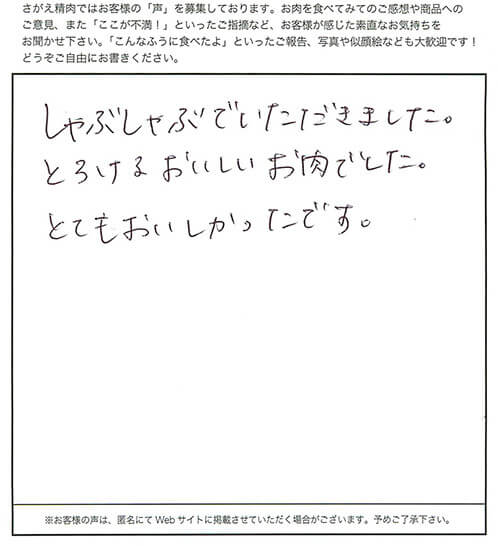 さがえ精肉ではお客様の「声」を募集しております。お肉を食べてみてのご感想や商品への
ご意見、また「ここが不満！」といったご指摘など、お客様が感じた素直なお気持ちを
お聞かせ下さい。「こんなふうに食べたよ」といったご報告、写真や似顔絵なども大歓迎です！
どうぞご自由にお書きください。
しゃぶしゃぶでいただきました。
とろけるおいしいお肉でした。
とてもおいしかったです。
※お客様の声は、匿名にて Web サイトに掲載させていただく場合がございます。予めご了承下さい。